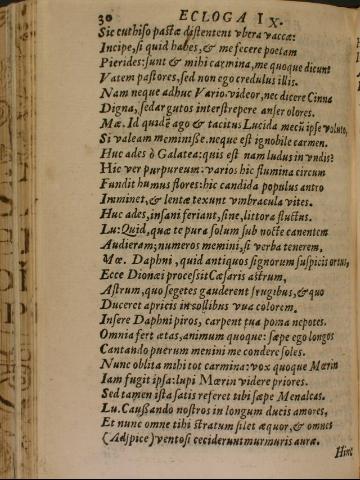 30 ECLOGA IX.
Sic cuthiso pastæ distentent vbera vaccæ:
Incipe, si quid habes, & me fecere poetam
Pierides: sunt & mihi carmina, me quoque dicunt
Vatem pastores, sed non ego credulus illis.
Nam neque adhuc Vario videor, nec dicere Cinna
Digna, sed argutos interstrepere anser olores.
Mœ. Id quidē ago & tacitus Lucida mecū ipse voluto,
Si valeam meminisse. neque est ignobile carmen.
Huc ades ô Galatea: quis est nam ludus in vndis?
Hic ver purpureum: varios hic flumina circum
Fundit humus flores: hic candida populus antro
Imminet, & lentæ texunt vmbracula vites.
Huc ades, insani feriant, sine, littora fluctus.
Lu: Quid, quæ te pura solum sub nocte canentem
Audieram; numeros memini, si verba tenerem,
Mœ. Daphni, quid antiquos signorum suspicis ortus,
Ecce Dionæi processit Cæsaris astrum,
Astrum, quo segetes gauderent frugibus, & quo
Duceret apricis in sollibus vua colorem.
Insere Daphni piros, carpent tua poma nepotes.
Omnia fert ætas, animum quoque: sæpe ego longos
Cantando puerum memini me condere soles.
Nunc oblita mihi tot carmina: vox quoque Mœrin
Iam fugit ipsa: lupi Mœrin videre priores.
Sed tamen ista satis referet tibi sæpe Menalcas.
Lu. Caussando nostros in longum ducis amores,
Et nunc omne tibi stratum silet æquor, & omnes
(Adspice) ventosi ceciderunt murmuris auræ.
Hinc